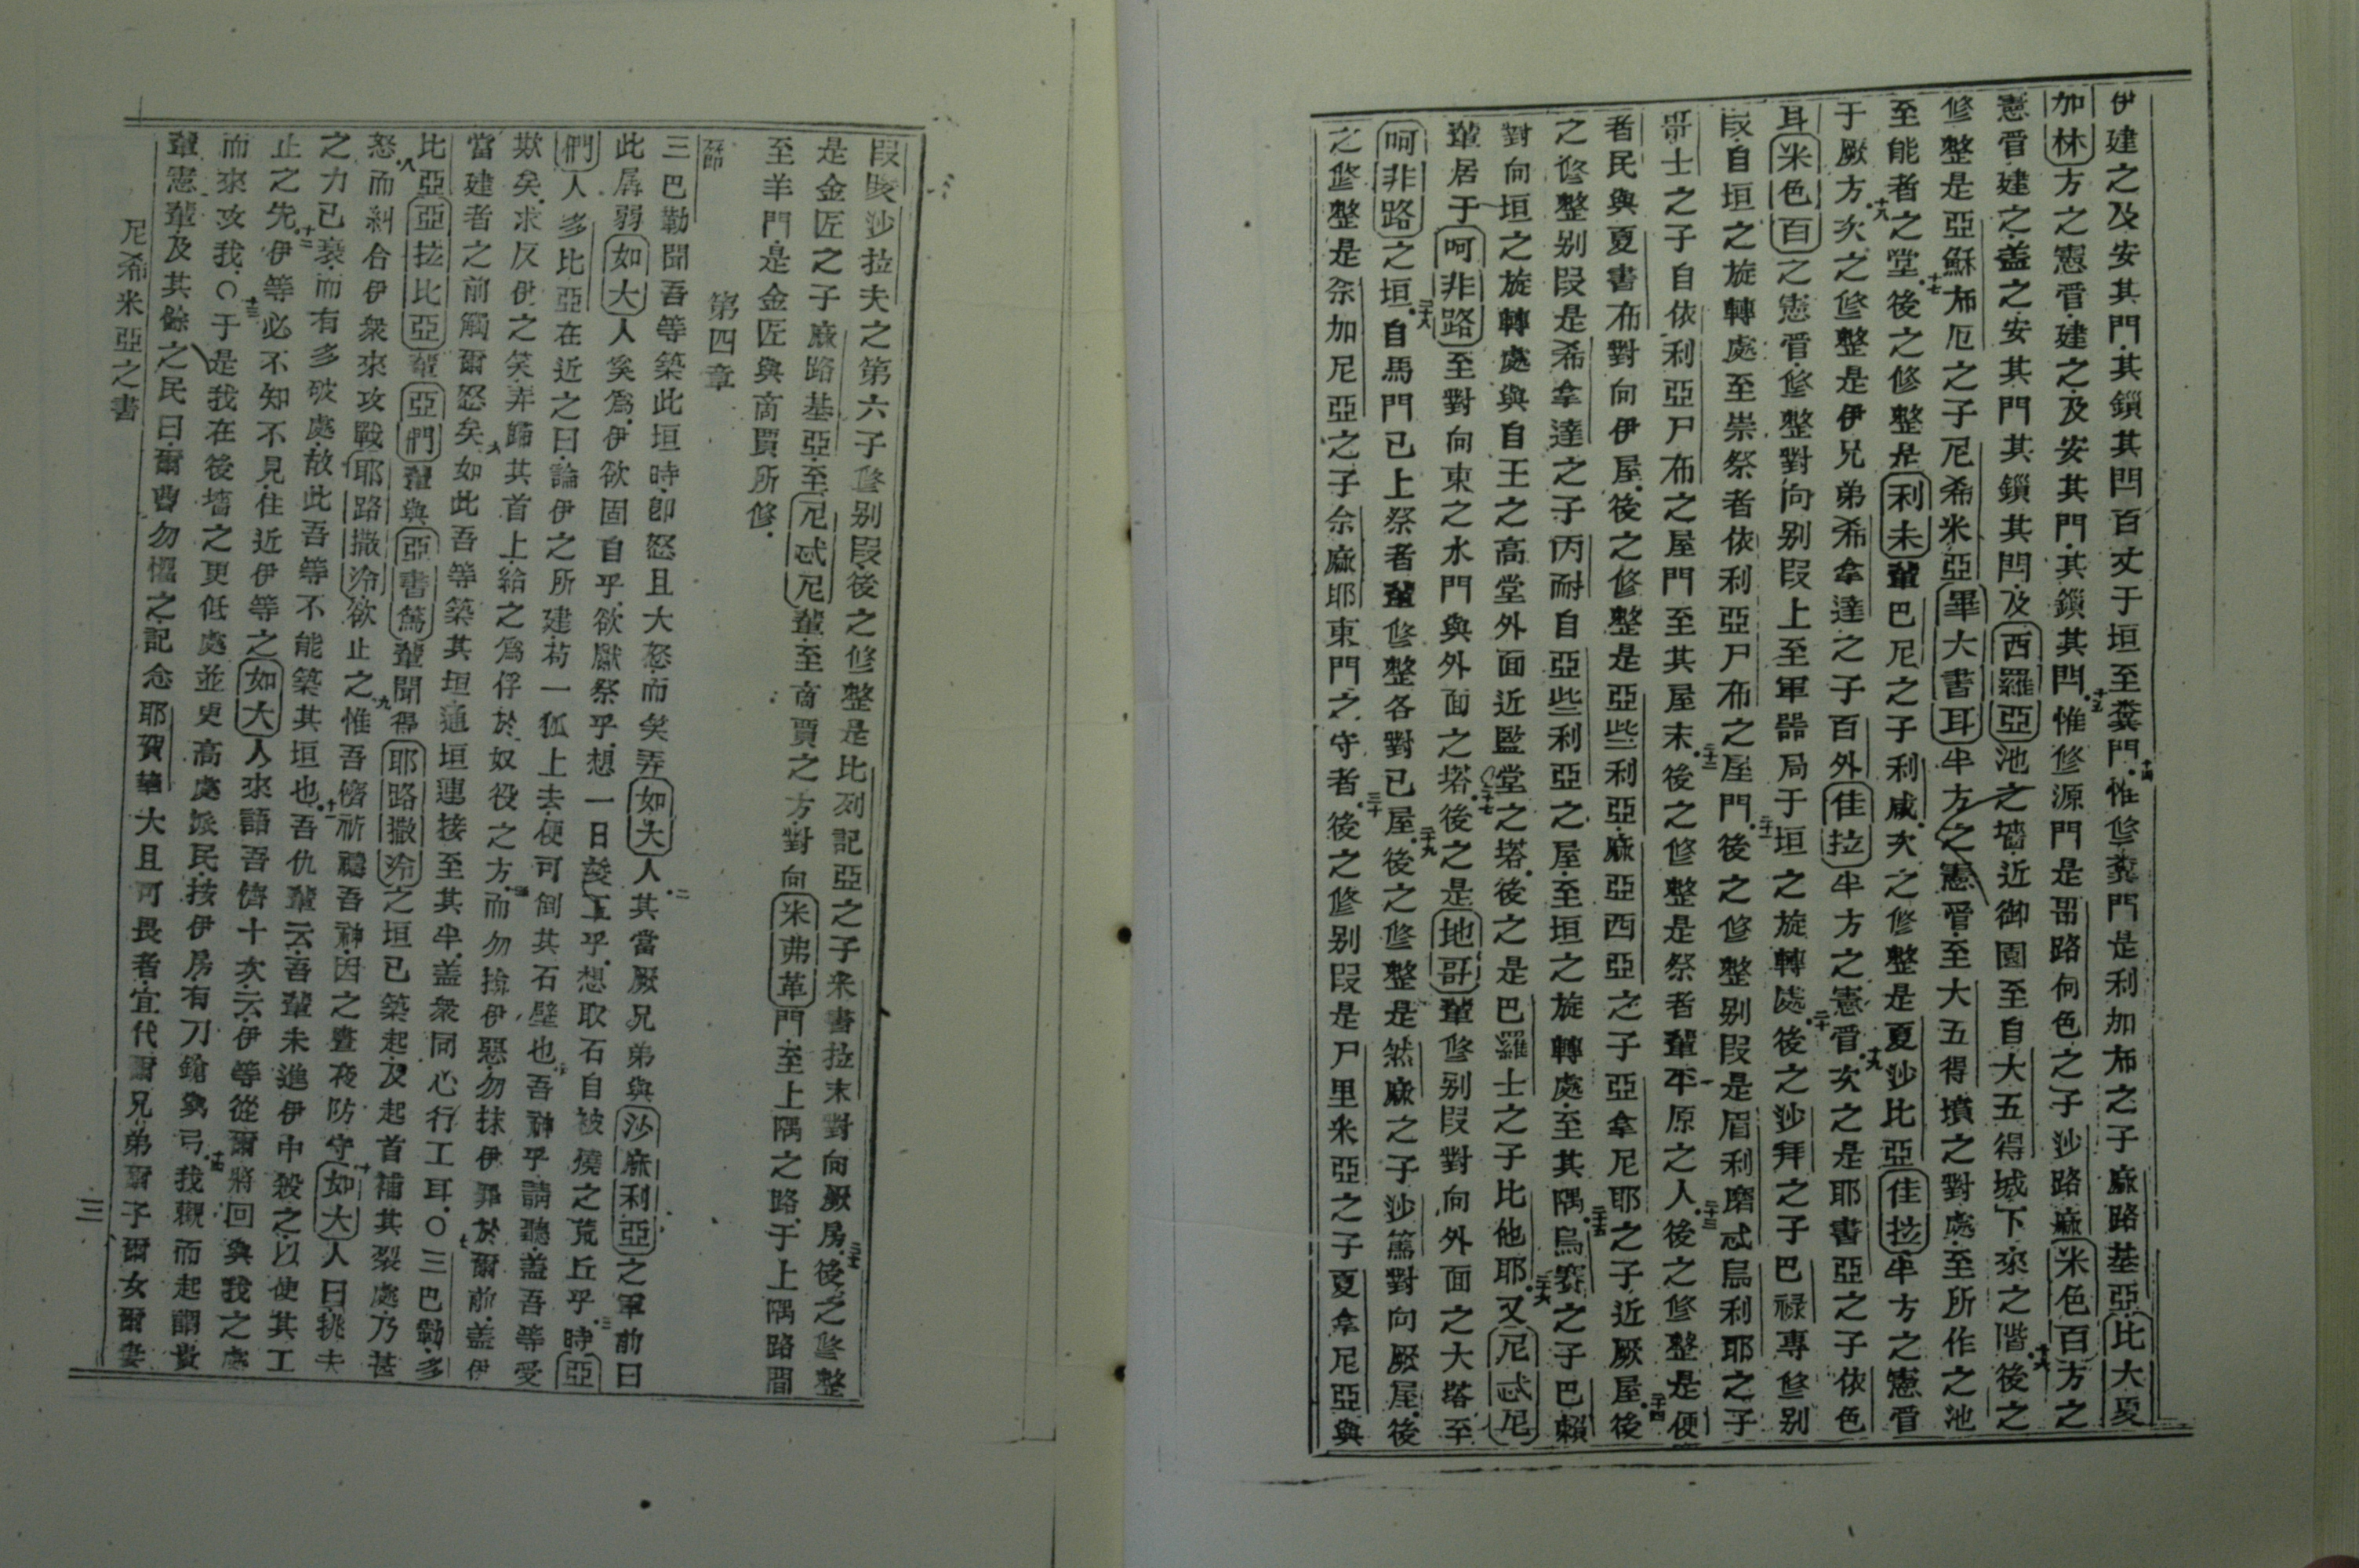 伊建之及安其門其鎖其閂百丈于垣至糞門十四惟修糞門是利加布之子麻路基亞比大夏
加林方之憲晉建之及安其門其鎖其閂十五惟修源門是哥路何色之子沙路麻米色百方之
憲晉建之盖之安其門其鎖其閂及西羅亞池之墻近御園至自大五得城下來之階十六後之
修整是亞穌布厄之子尼希米亞畢大書耳半方之憲晉至大五得墳之對處至所作之池
至能者之堂十七後之修整是利未輩巴尼之子利咸次之修整是夏沙比亞佳拉半方之憲晉
于厥方十八次之修整是伊兄弟希拿達之子百外佳拉半方之憲晉十九次之是耶書亞之子依色
耳米色百之憲晉修整對向别段上至軍器局于垣之旋轉處二十後之沙拜之子巴祿專修别
段自垣之旋轉處至崇祭者依利亞尸布之屋門二十一後之修整别段是眉利磨忒烏利耶之子
哥士之子自依利亞尸布之屋門至其屋末二十二後之修整是祭者輩平原之人二十三後之修整是便
者民與夏書布對向伊屋後之修整是亞些利亞麻亞西亞之子亞拿尼耶之子近厥屋二十四後
之修整别段是希拿達之子丙耐自亞些利亞之屋至垣之旋轉處至其隅二十五烏賽之子巴賴
對向垣之旋轉處與自王之高堂外面近監堂之塔後之是巴羅士之子比他耶二十六又尼忒尼
輩居于呵非路至對向東之水門與外面之塔二十七後之是地哥輩修别段對向外面之大塔至
呵非路之垣二十八自馬門已上祭者輩修整各對已屋二十九後之修整是然麻之子沙篤對向厥屋後
之修整是佘加尼亞之子佘麻耶東門之守者三十後之修别段是尸里米亞之子夏拿尼亞與
段㫘沙拉夫之第六子修别段後之修整是比列記亞之子米書拉末對向厥房三十一後之修整
是金匠之子麻路基亞至尼忒尼輩至商賈之方對向米弗革門至上隅之路于上隅路間
至羊門是金匠與商賈所修
第四章
三巴勒聞吾等築此垣時即怒且大怒而矣弄如大人二其當厥兄弟與沙麻利亞之軍前曰
此孱弱如大人奚爲伊欲固自乎欲獻祭乎想一日竣工乎想取石自被燒之荒丘乎三時亞
們人多比亞在近之曰論伊之所建苟一狐上去便可倒其石壁也四吾神乎請聽盖吾等受
欺矣求反伊之笑弄歸其首上給之爲俘於奴役之方五而勿掩伊惡勿抹伊罪於爾前盖伊
當建者之前觸爾怒矣六如此吾等築其垣通垣連接至其半盖衆同心行工耳〇七三巴勒多
比亞亞拉比亞輩亞們輩與亞書篤輩聞得耶路撒冷之垣已築起及起首補其裂處乃甚
怒八而糾合伊衆來攻戰耶路撒冷欲止之九惟吾儕祈禱吾神因之晝夜防守十如大人曰挑夫
之力已衰而有多破處故此吾等不能築其垣也十一吾仇輩云吾輩未進伊中殺之以使其工
止之先十二伊等必不知不見住近伊等之如大人來語吾儕十次云伊等從爾將回與我之處
而來攻我〇十三于是我在後墻之更低處並更高處派民按伊房有刀鎗與弓十四我觀而起謂貴
輩憲輩及其餘之民曰爾曹勿懼之記念耶賀華大且可畏者宜代爾兄弟爾子爾女爾妻
尼希米亞之書
三